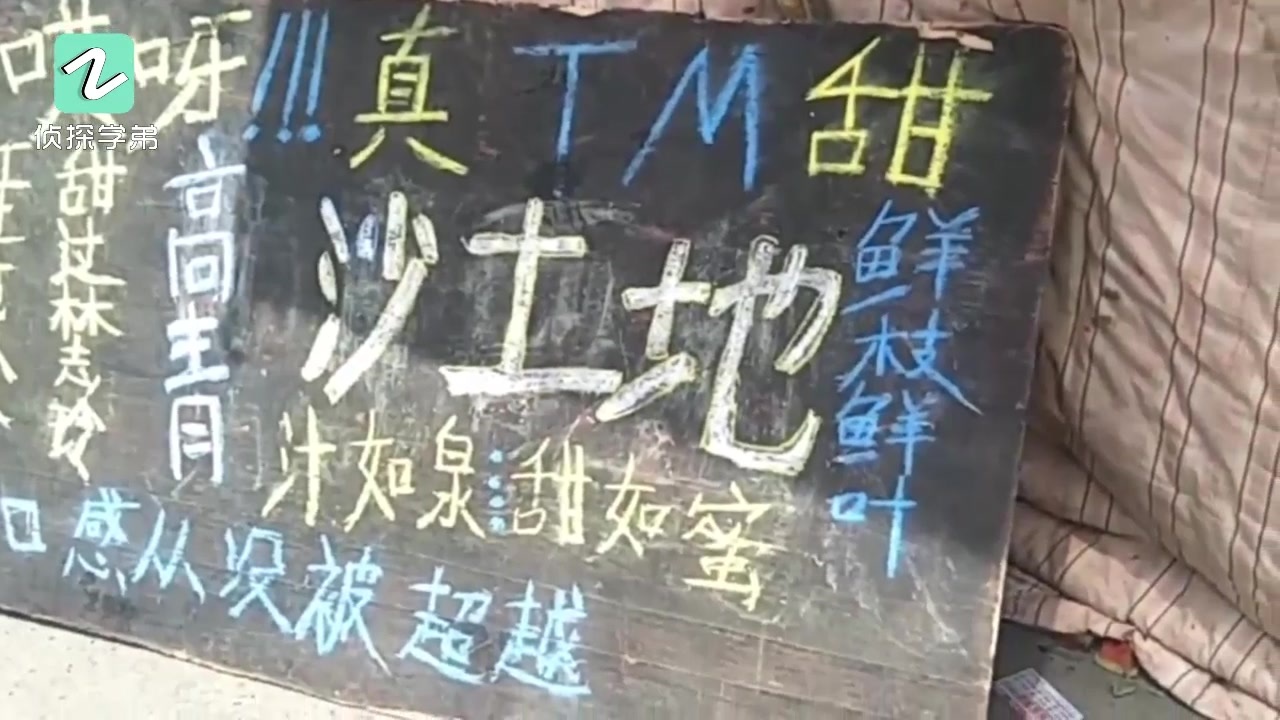 侦探学弟
哎呀!!!真TM甜
鲜枝鲜叶
沙土地
高回青
甜过林志玲
汁如泉……甜如蜜
口感从没被超越